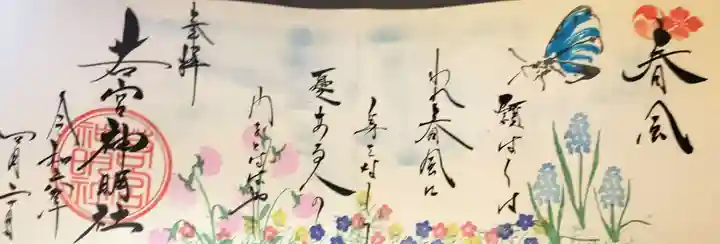 春風
願はくは
われ春風に
身をなして
憂ある人の
門をとはばや
奉拝
若宮神明社
令和
四月